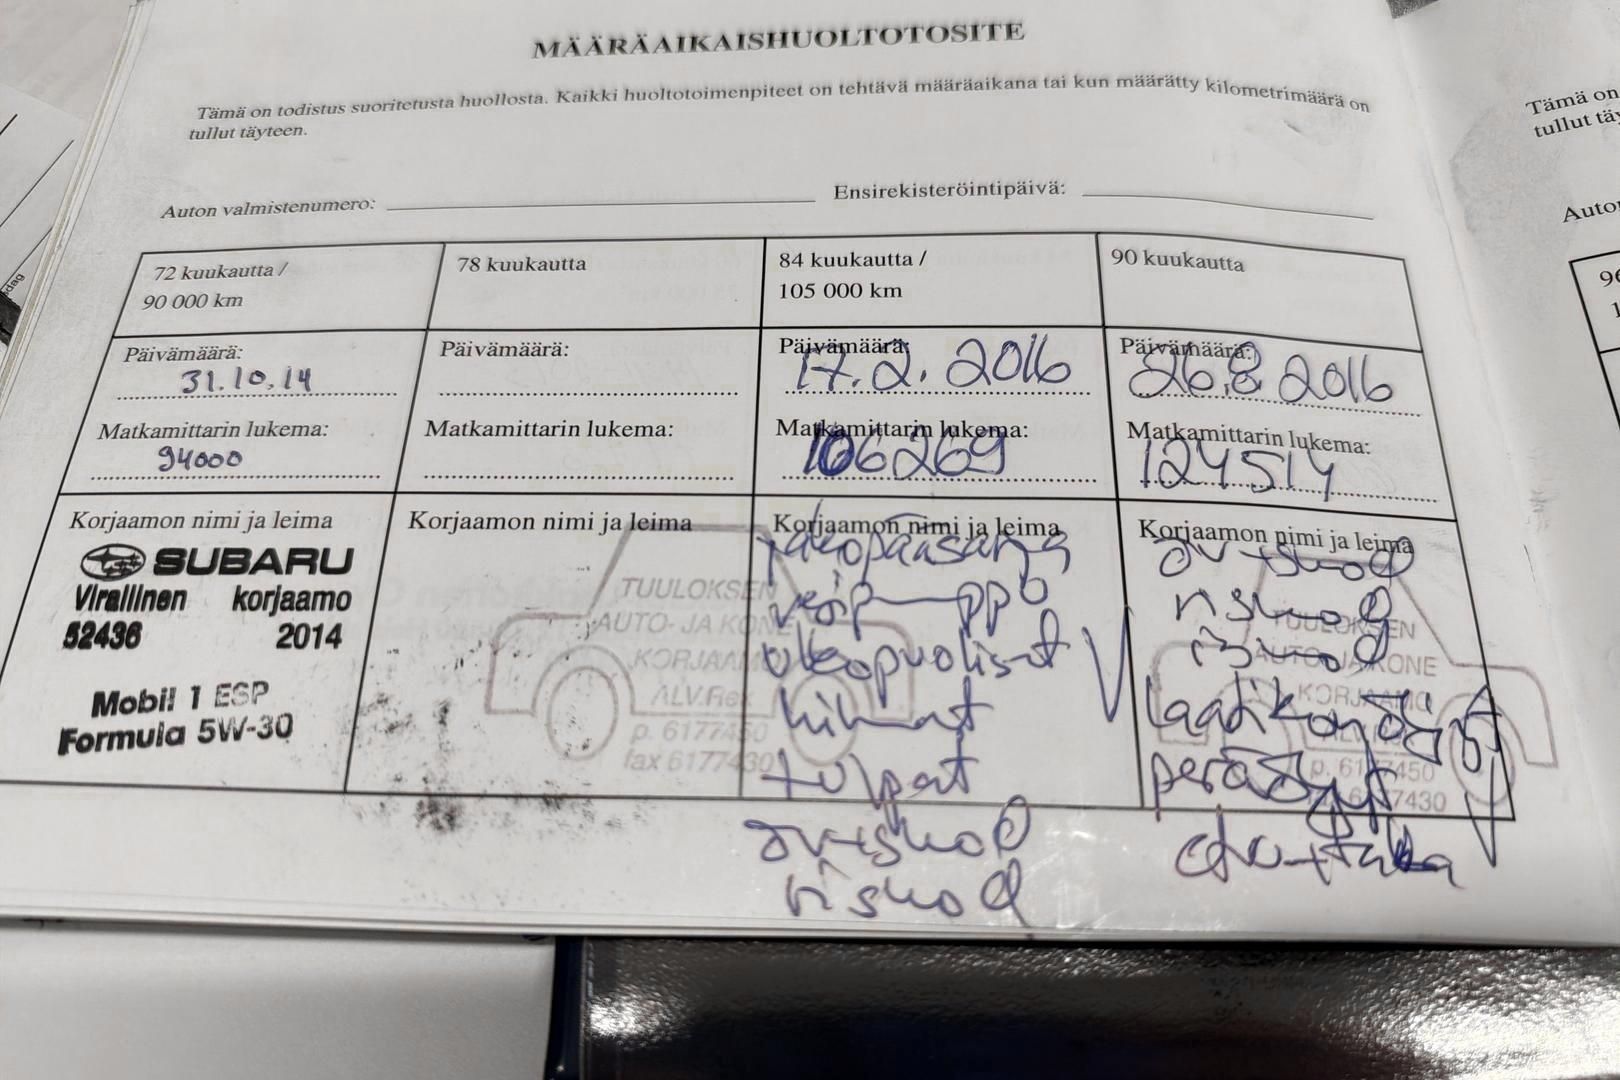 MÄÄRÄAIKAISHUOLTOTOSITE
Tämä on todistus suoritetusta huollosta. Kaikki huoltotoimenpiteet on tehtävä määräaikana tai kun määrätty kilometrimäärä on
tullut täyteen.
Auton valmistenumero:
Ensirekisteröintipäivä:
72 kuukautta /
90 000 km
Päivämäärä:
31.10.14
Matkamittarin lukema:
94000
Korjaamon nimi ja leima
SUBARU
Virallinen korjaamo
52436 2014
Mobil 1 ESP
Formula 5W-30
78 kuukautta
Päivämäärä:
Matkamittarin lukema:
Korjaamon nimi ja leima
TUULOKSEN
AUTO- JA KONE
KORJAAMO
ALV.Rek
p. 6177450
fax 6177430
84 kuukautta /
105 000 km
Päivämäärä:
17.2.2016
Matkamittarin lukema:
106269
Korjaamon nimi ja leima
jakopääsarja
ulkopuoliset
hihnat
tulpat
90 kuukautta
Päivämäärä:
26.8.2016
Matkamittarin lukema:
124514
Korjaamon nimi ja leima
TUULOKSEN
AUTO- JA KONE
KORJAAMO
p. 6177450
6177430
Tämä on
tullut